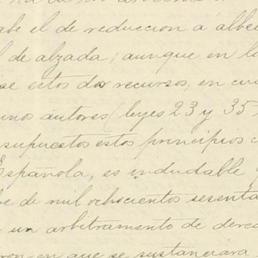 abe el de reduccion a albe
l de alzada; aunque en la
se estos dos recursos, en cu
unos autores (leyes 23 y 35
supuestos estos principios c
Española, es indudable
e de mil ochocientos sesenta
un arbitramento de derec
en que se sustanciara